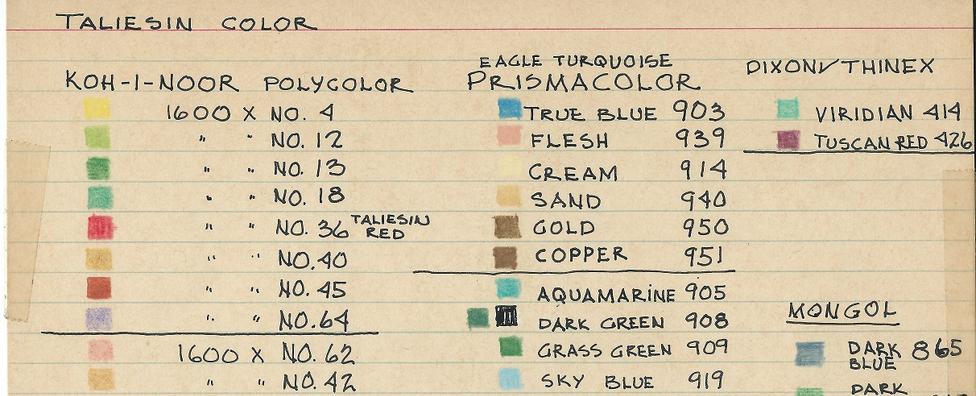 TALIESIN COLOR
KOH-I-NOOR POLYCOLOR
1600 X NO. 4
" " NO. 12
" " NO. 13
" " NO. 18
" " NO. 36 TALIESIN RED
" " NO. 40
" " NO. 45
" " NO. 64
1600 X NO. 62
" " NO. 42
EAGLE TURQUOISE
PRISMACOLOR
TRUE BLUE 903
FLESH 939
CREAM 914
SAND 940
GOLD 950
COPPER 951
AQUAMARINE 905
DARK GREEN 908
GRASS GREEN 909
SKY BLUE 919
DIXON/THINEX
VIRIDIAN 414
TUSCAN RED 426
MONGOL
DARK BLUE 865
DARK